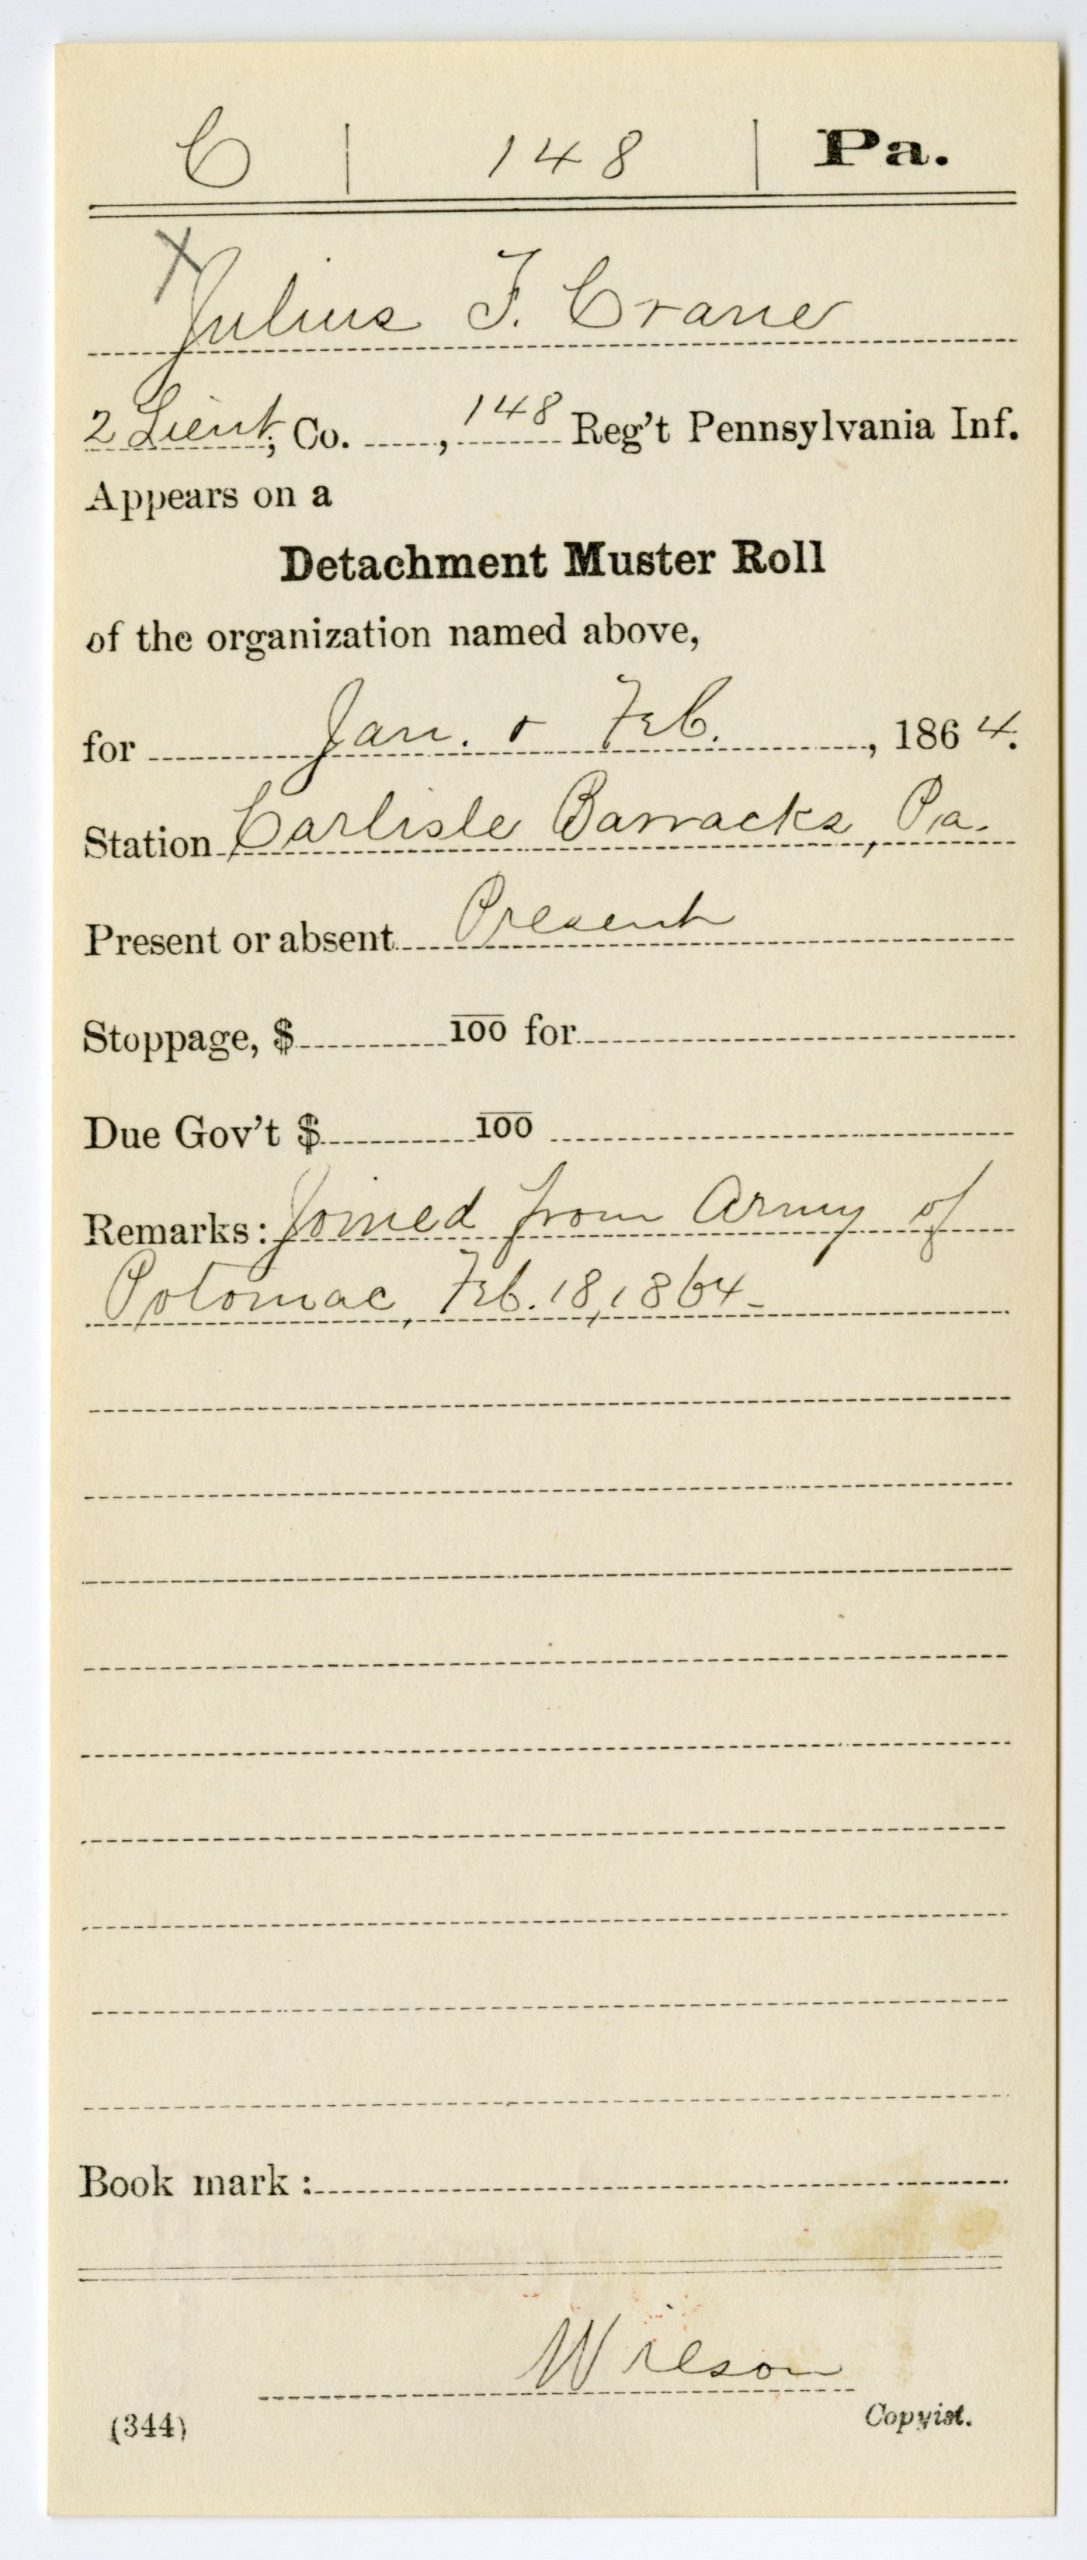 C | 148 | Pa.
X
Julius F. Crane
2 Lieut, Co. ......, 148 Reg't Pennsylvania Inf.
Appears on a
Detachment Muster Roll
of the organization named above,
for Jan. & Feb., 1864.
Station Carlisle Barracks, Pa.
Present or absent Present
Stoppage, $ 100 for
Due Gov't $ 100
Remarks: Joined from Army of
Potomac, Feb. 18, 1864-
Book mark:
Wilson
(344) Copyist.